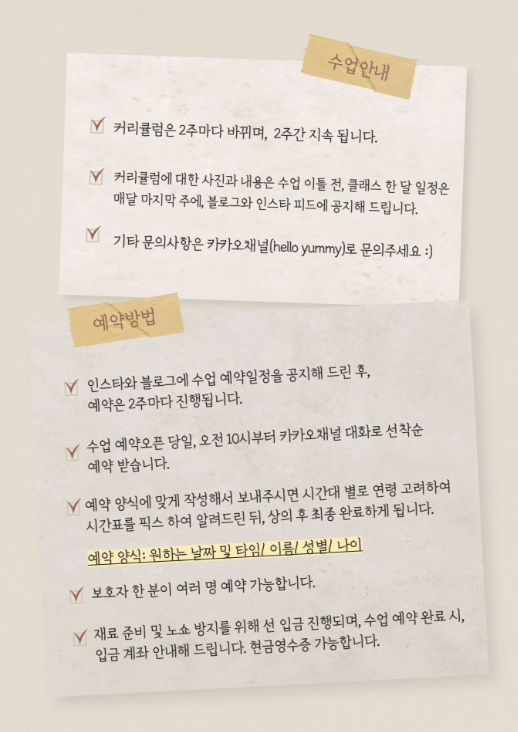 수업안내
커리큘럼은 2주마다 바뀌며, 2주간 지속 됩니다.
커리큘럼에 대한 사진과 내용은 수업 이틀 전, 클래스 한 달 일정은
매달 마지막 주에, 블로그와 인스타 피드에 공지해 드립니다.
기타 문의사항은 카카오채널(hello yummy)로 문의주세요 :)
예약방법
인스타와 블로그에 수업 예약일정을 공지해 드린 후,
예약은 2주마다 진행됩니다.
수업 예약오픈 당일, 오전 10시부터 카카오채널 대화로 선착순
예약 받습니다.
예약 양식에 맞게 작성해서 보내주시면 시간대 별로 연령 고려하여
시간표를 픽스 하여 알려드린 뒤, 상의 후 최종 완료하게 됩니다.
예약 양식: 원하는 날짜 및 타임/ 이름/ 성별/ 나이
보호자 한 분이 여러 명 예약 가능합니다.
재료 준비 및 노쇼 방지를 위해 선 입금 진행되며, 수업 예약 완료 시,
입금 계좌 안내해 드립니다. 현금영수증 가능합니다.